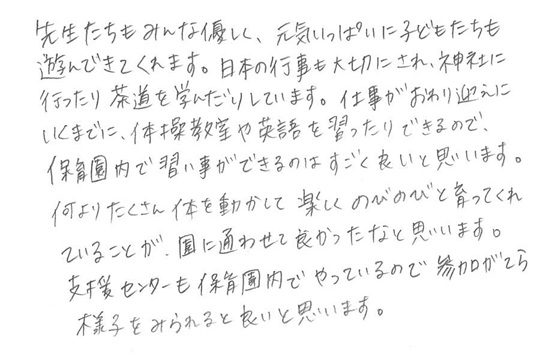 先生たちもみんな優しく、元気いっぱいに子どもたちも
遊んできてくれます。日本の行事も大切にされ、神社に
行ったり茶道を学んだりしています。仕事がおわり迎えに
いくまでに、体操教室や英語を習ったりできるので、
保育園内で習い事ができるのはすごく良いと思います。
何よりたくさん体を動かして楽しくのびのびと育ってくれ
ていることが、園に通わせて良かったなと思います。
支援センターも保育園内でやっているので参加がてら
様子をみられると良いと思います。